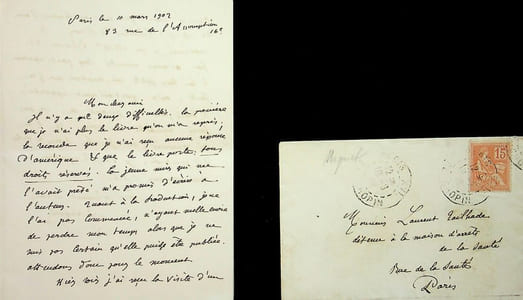 Paris le 10 mars 1902
83 rue de l'Assomption
16e
Mon cher ami
Il n'y a que deux difficultés. la première
que je n'ai plus le livre qu'on m'a repris,
la seconde que je n'ai reçu aucune réponse
d'amérique & que le livre porte: tous
droits réservés. Le jeune mis qui me
l'avait prêté m'a promis d'écrire à
l'auteur. Quant à la traduction, je ne
l'ai pas commencée, n'ayant nulle envie
de perdre mon temps alors que je ne
suis pas certain qu'elle puisse être publiée.
attendons donc pour le moment.
Hier soir j'ai reçu la visite d'un
15
CHOPIN
Monsieur Laurent Tailhade
détenu à la maison d'arrêt
de la Santé
Rue de la Santé
Paris